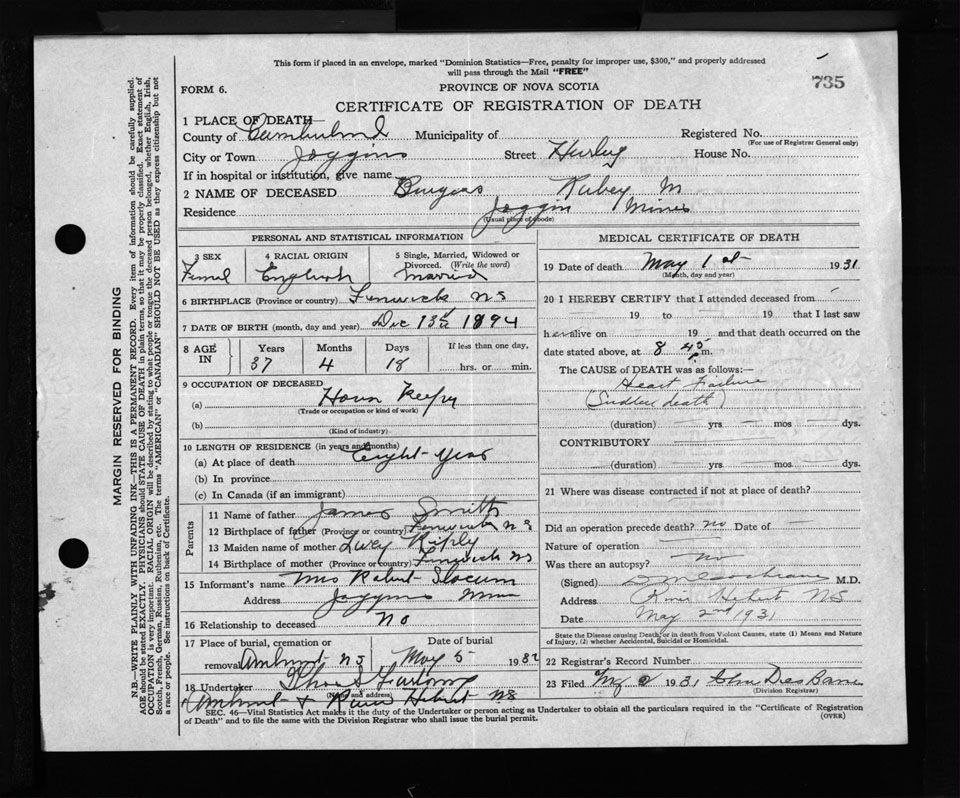 This form if placed in an envelope, marked "Dominion Statistics—Free, penalty for improper use, $300," and properly addressed
will pass through the Mail "FREE"
735
FORM 6.
PROVINCE OF NOVA SCOTIA
CERTIFICATE OF REGISTRATION OF DEATH
1 PLACE OF DEATH—
County of Cumberland Municipality of Registered No.
(For use of Registrar General only)
City or Town Joggins Street Hurley House No.
If in hospital or institution, give name
2 NAME OF DECEASED Burgess Rubey M
Residence Joggin Mines
(Usual place of abode)
PERSONAL AND STATISTICAL INFORMATION
3 SEX 4 RACIAL ORIGIN 5 Single, Married, Widowed or Divorced. (Write the word)
Femel English Married
6 BIRTHPLACE (Province or country) Fenwick NS
7 DATE OF BIRTH (month, day and year) Dec 13 1894
8 AGE IN Years Months Days If less than one day,
37 4 18 hrs. or min.
9 OCCUPATION OF DECEASED
(a) House Keeper
(Trade or occupation or kind of work)
(b)
(Kind of industry)
10 LENGTH OF RESIDENCE (in years and months)
(a) At place of death Eight Year
(b) In province
(c) In Canada (if an immigrant)
Parents
11 Name of father James Smith
12 Birthplace of father (Province or country) Fenwick NS
13 Maiden name of mother Lucy Riply
14 Birthplace of mother (Province or country) Fenwick NS
15 Informant's name Mrs Robert Slocum
Address Joggins Mines
16 Relationship to deceased No
17 Place of burial, cremation or Date of burial
removal Amherst NS May 5 1932
18 Undertaker
(Name and address)
Amherst + River Hebert NS
MEDICAL CERTIFICATE OF DEATH
19 Date of death May 1st 1931
(Month, day and year)
20 I HEREBY CERTIFY that I attended deceased from
19 to 19 that I last saw
her alive on 19 and that death occurred on the
date stated above, at 8 45 p.m.
The CAUSE of DEATH was as follows:—
Heart Failure
(Sudden death)
(duration) yrs mos dys.
CONTRIBUTORY
(duration) yrs mos dys.
21 Where was disease contracted if not at place of death?
Did an operation precede death? no Date of
Nature of operation
Was there an autopsy? no
(Signed) Cochrane M.D.
Address River Hebert NS
Date May 2nd 1931
State the Disease causing Death, or in death from Violent Causes, state (1) Means and Nature
of Injury, (2) whether Accidental, Suicidal or Homicidal.
22 Registrar's Record Number
23 Filed 1931 John Des Barres
(Division Registrar)
SEC. 46—Vital Statistics Act makes it the duty of the Undertaker or person acting as Undertaker to obtain all the particulars required in the "Certificate of Registration
of Death" and to file the same with the Division Registrar who shall issue the burial permit.
(OVER)
MARGIN RESERVED FOR BINDING
N.B.—WRITE PLAINLY WITH UNFADING INK—THIS IS A PERMANENT RECORD. Every item of information should be carefully supplied.
AGE should be stated EXACTLY. PHYSICIANS should STATE CAUSE OF DEATH in plain terms, so that it may be properly classified. Exact statement of
OCCUPATION is very important. RACIAL ORIGIN will be described by stating to what people or tongue the deceased person belonged, whether English, Irish,
Scotch, French, German, Russian, Ruthenian, etc. The terms "AMERICAN" or "CANADIAN" SHOULD NOT BE USED as they express citizenship but not
a race or people. See instructions on back of Certificate.